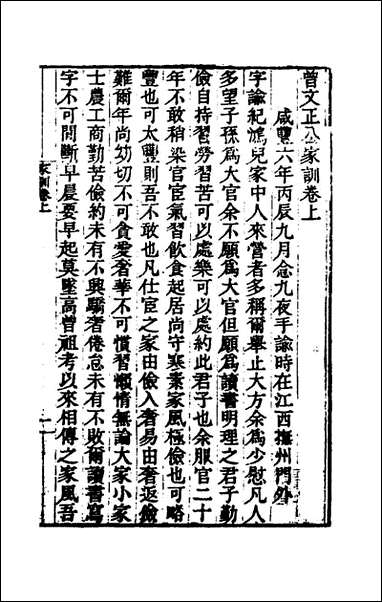 曾文正公家訓卷上
咸豐六年丙辰九月念九夜手諭時在江西撫州門外
字諭紀鴻兒家中人來營者多稱爾舉止大方余為少慰凡人
多望子孫為大官余不願為大官但願為讀書明理之君子勤
儉自持習勞習苦可以處樂可以處約此君子也余服官二十
年不敢稍染官宦氣習飲食起居尚守寒素家風極儉也可略
豐也可太豐則吾不敢也凡仕宦之家由儉入奢易由奢返儉
難爾年尚幼切不可貪愛奢華不可慣習懶惰無論大家小家
士農工商勤苦儉約未有不興驕奢倦怠未有不敗爾讀書寫
字不可間斷早晨要早起莫墜高曾祖考以來相傳之家風吾
家訓卷上
一